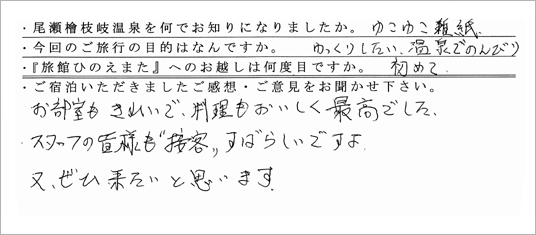 ・尾瀬檜枝岐温泉を何でお知りになりましたか。 ゆこゆこ雑紙
・今回のご旅行の目的はなんですか。 ゆっくりしたい、温泉でのんびり
・『旅館ひのえまた』へのお越しは何度目ですか。 初めて
・ご宿泊いただきましたご感想・ご意見をお聞かせ下さい。
お部屋もきれいで、料理もおいしく最高でした、
スタッフの皆様も"接客"すばらしいですよ
又、ぜひ来たいと思います。